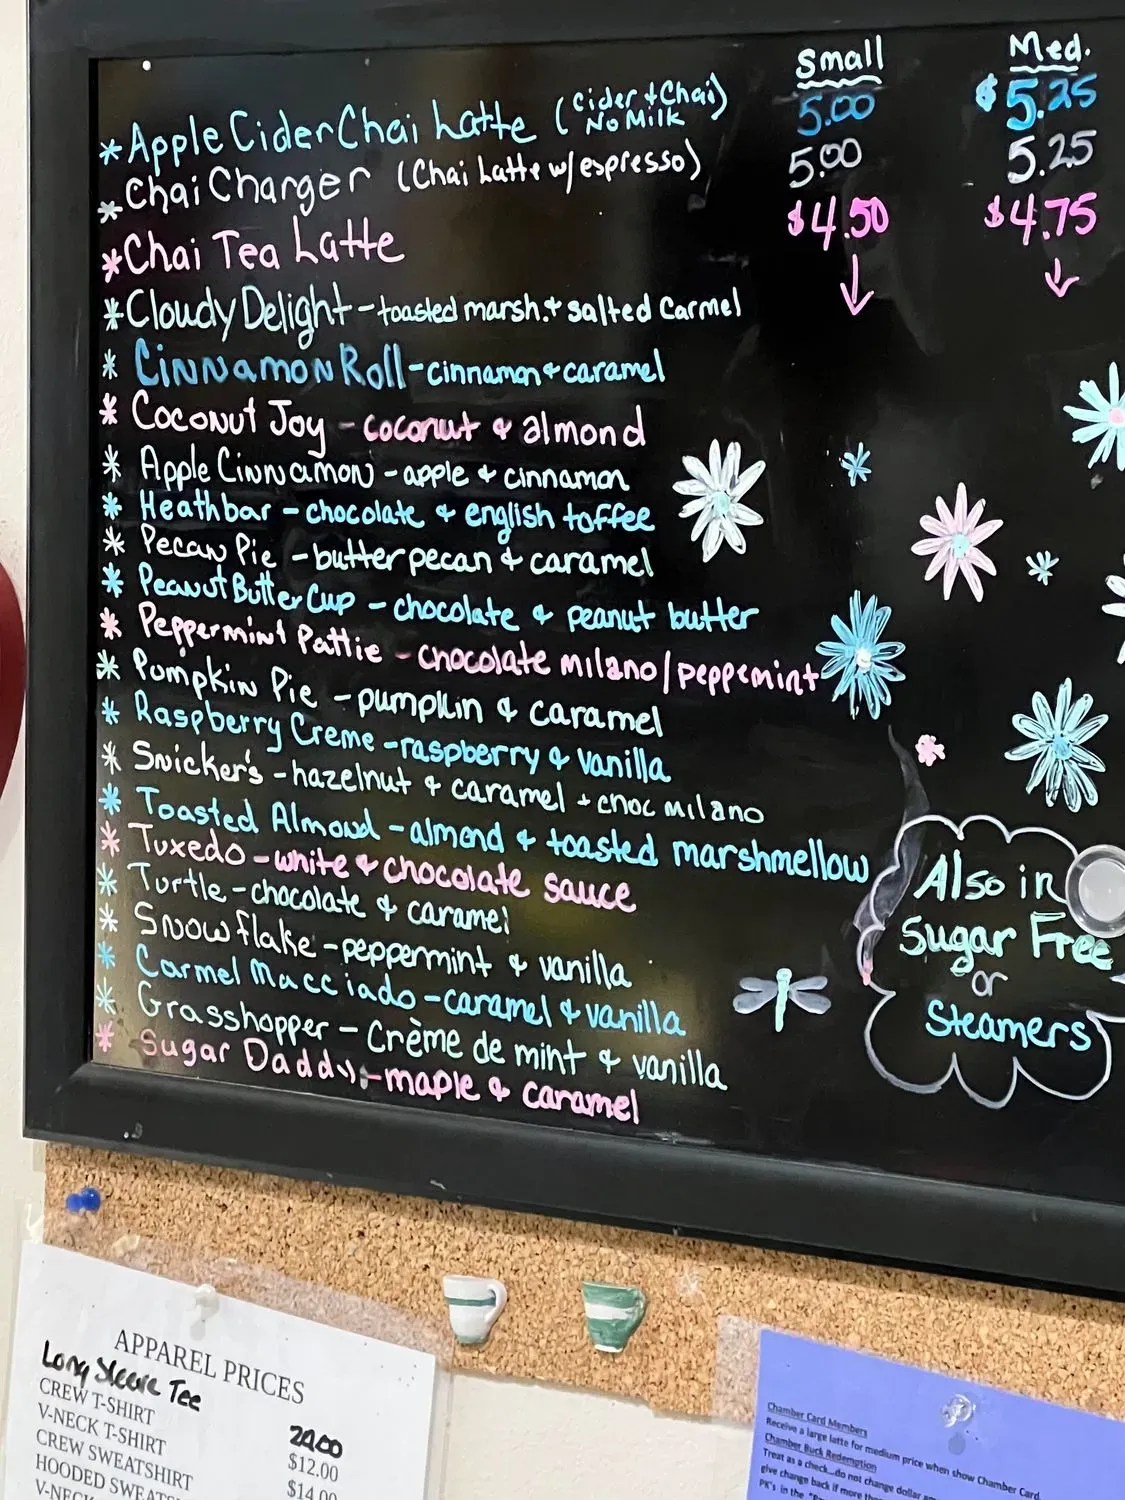 Small Med.
*Apple Cider Chai Latte (Cider + Chai) No Milk 5.00 $5.25
*Chai Charger (Chai Latte w/espresso) 5.00 5.25
*Chai Tea Latte $4.50 $4.75
*Cloudy Delight - toasted marsh. + salted Carmel
* Cinnamon Roll - cinnamon + caramel
* Coconut Joy - coconut & almond
* Apple Cinnamon - apple & cinnamon
* Heathbar - chocolate & english toffee
* Pecan Pie - butter pecan & caramel
* Peanut Butter Cup - chocolate & peanut butter
* Peppermint Pattie - chocolate milano/peppermint
* Pumpkin Pie - pumpkin & caramel
* Raspberry Creme - raspberry & vanilla
* Snicker's - hazelnut & caramel + choc milano
* Toasted Almond - almond & toasted marshmellow
* Tuxedo - white & chocolate sauce
* Turtle - chocolate & caramel
* Snowflake - peppermint & vanilla
* Carmel Macciado - caramel & vanilla
* Grasshopper - Crème de mint & vanilla
* Sugar Daddy - maple & caramel
Also in
Sugar Free
or
Steamers
APPAREL PRICES
Long Sleeve Tee
CREW T-SHIRT
V-NECK T-SHIRT $12.00
CREW SWEATSHIRT $14.00
HOODED
V-NECK
Chamber Card Members
Receive a large latte for medium price when show Chamber Card
Chamber Buck Redemption
Treat as a check...do not change dollar
give change back if more
PK's in the